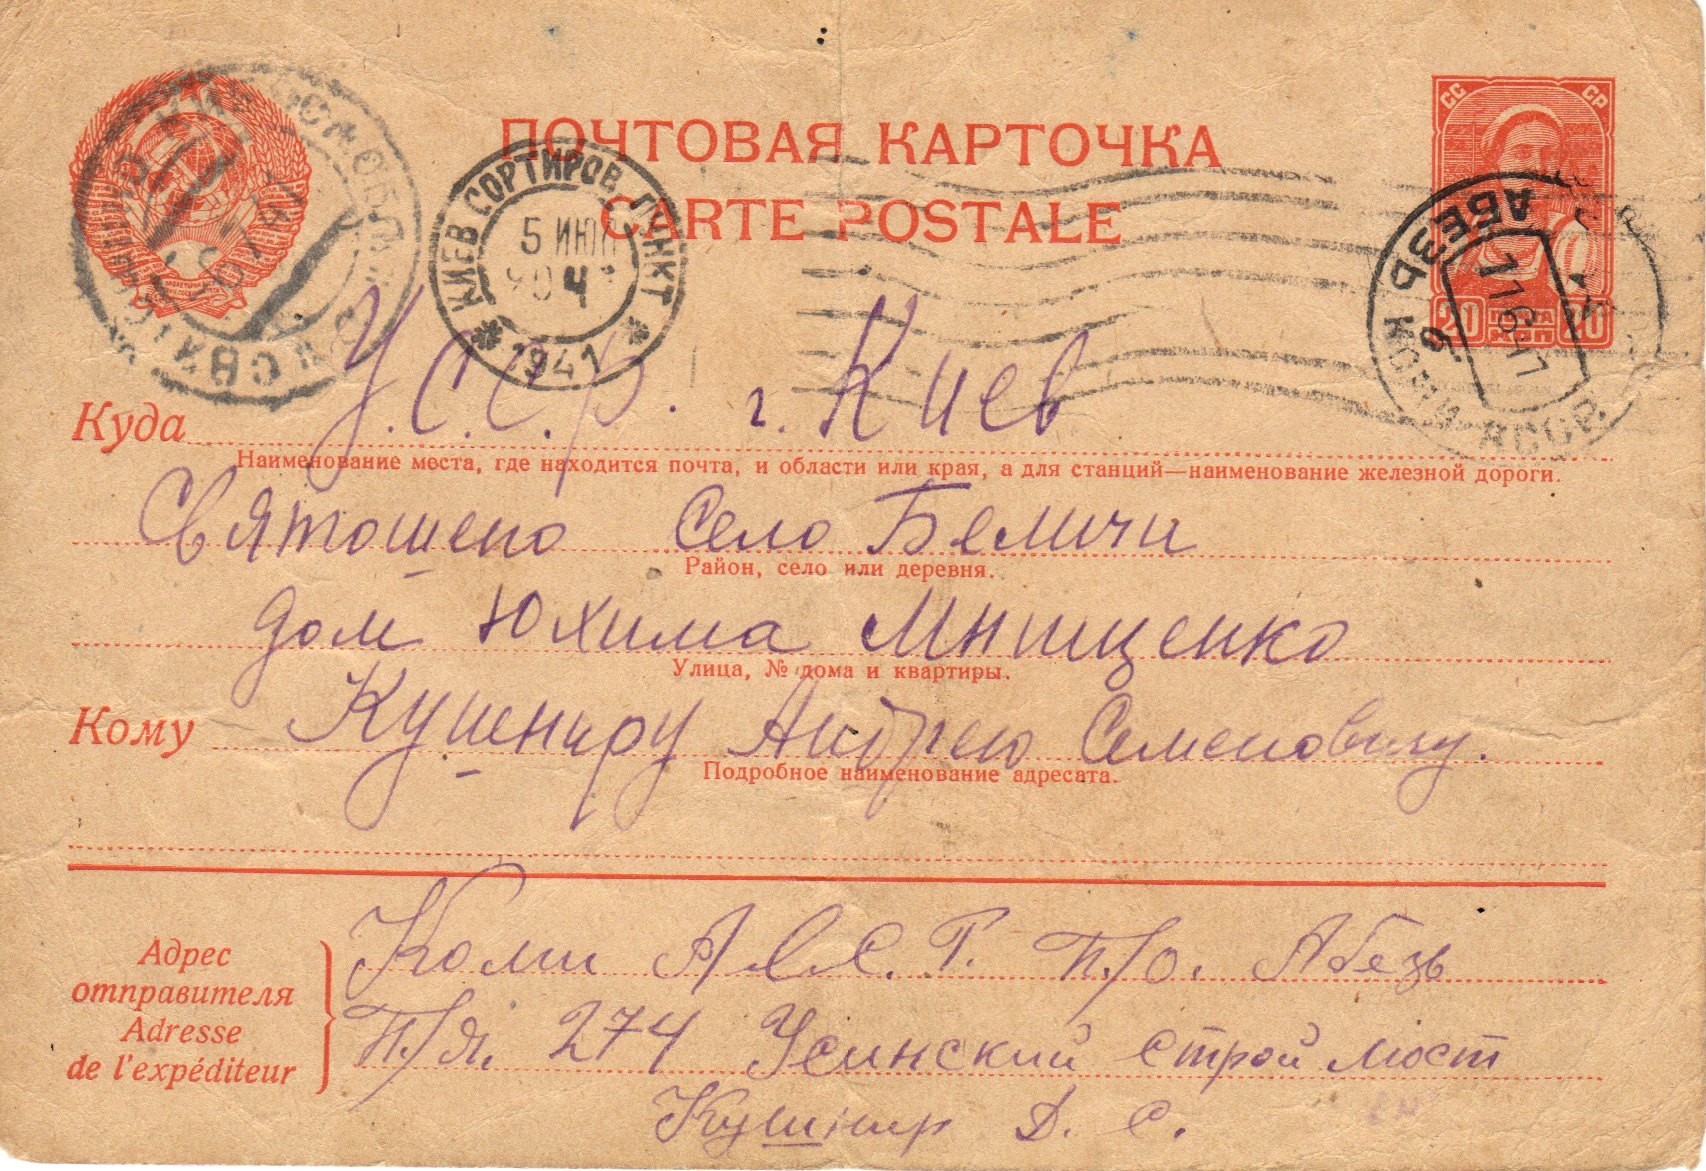 ПОЧТОВАЯ КАРТОЧКА
CARTE POSTALE
СС СР
20 ПОЧТА КОП 20
КИЕВ СОРТИРОВ. ПУНКТ
5 ИЮЛ
1941
АБЕЗЬ КОМИ АССР
11 6 41
Куда У.С.С.Р. г. Киев
Наименование места, где находится почта, и области или края, а для станций—наименование железной дороги.
Святошено село Беличи
Район, село или деревня.
дом Юхима Мнищенко
Улица, № дома и квартиры.
Кому Кушениру Андрею Семеновичу.
Подробное наименование адресата.
Адрес
отправителя
Adresse
de l'expéditeur
Коми А.С.С.Р. П/о. Абезь
П/Я. 274 Усинский строй мост
Кушнир Д. С.